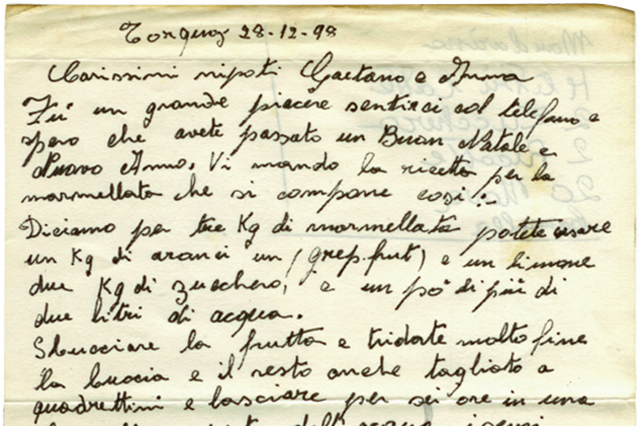 Torquay 28-12-98
Carissimi nipoti Gaetano e Anna
Fu' un grande piacere sentirci al telefano e
spero che avete passato un Buon Natale e
Nuovo Anno. Vi mando la ricetta per la
marmellata che si compone cosi:-
Diciamo per tre Kg di marmellata potete usare
un Kg di aranci un (grep.frut) e un limone
due Kg di zucchero, e un po' di più di
due litri di acqua.
Sbucciare la frutta e tridate molto fine
la buccia e il resto anche tagliato a
quadrettini e lasciare per sei ore in una
dell'acqua